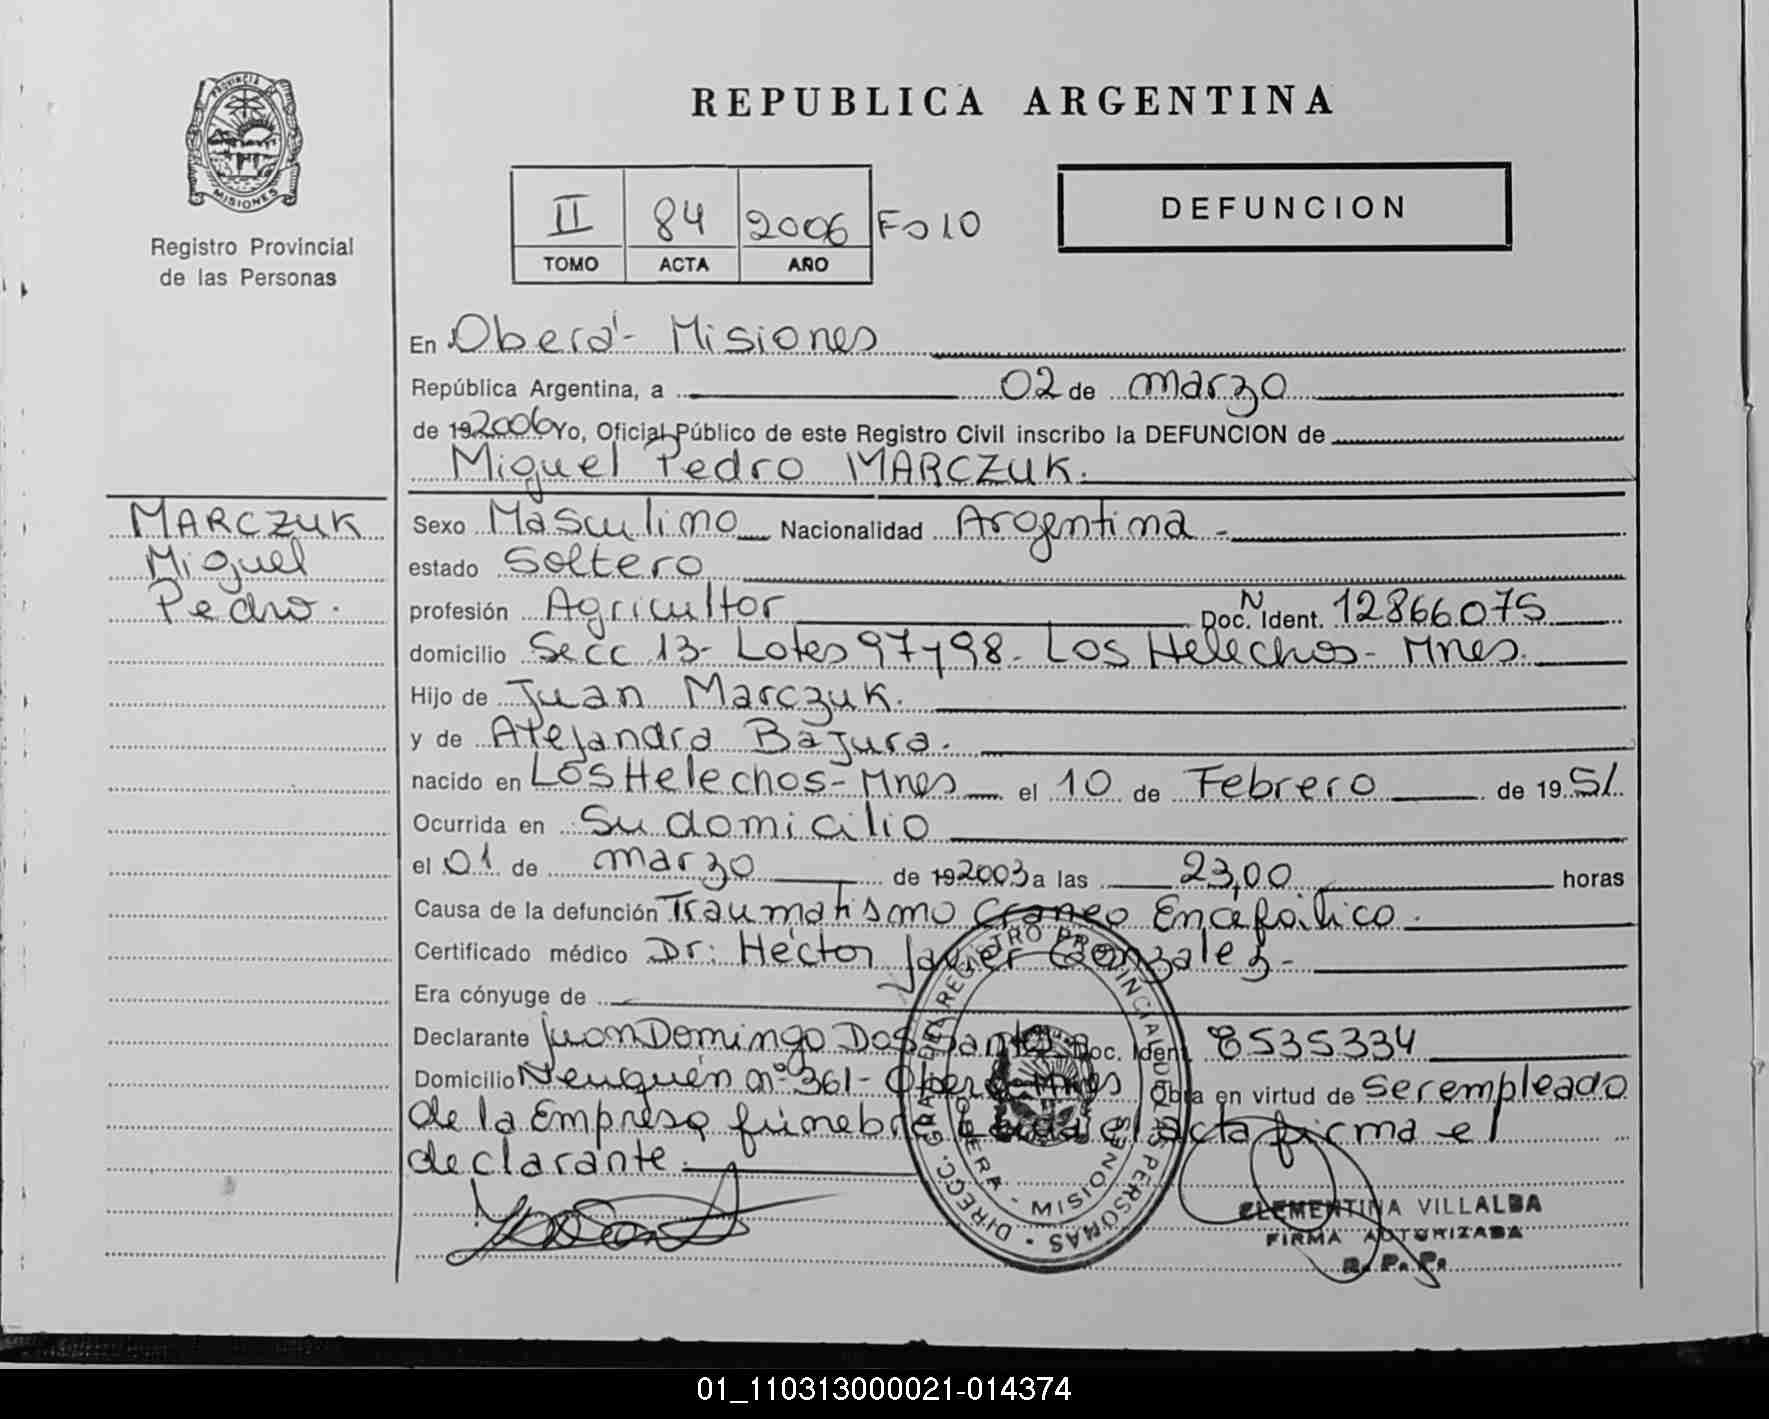 PROVINCIA DE
MISIONES
Registro Provincial
de las Personas
REPUBLICA ARGENTINA
II 84 2006 Fo 10
TOMO ACTA AÑO
DEFUNCION
En Oberá - Misiones
República Argentina, a 02 de marzo
de 192006 yo, Oficial Público de este Registro Civil inscribo la DEFUNCION de
Miguel Pedro MARCZUK.
MARCZUK
Miguel
Pedro.
Sexo Masculino Nacionalidad Argentina -
estado Soltero
profesión Agricultor Doc. N Ident. 12866075
domicilio Secc 13- Lotes 97y98- Los Helechos- Mnes.
Hijo de Juan Marczuk.
y de Alejandra Bajura.
nacido en Los Helechos - Mnes el 10 de Febrero de 19 51.
Ocurrida en Su domicilio
el 01 de marzo de 192003 a las 23,00 horas
Causa de la defunción Traumatismo Craneo Encefálico.
Certificado médico Dr: Héctor Javier Gonzalez-
Era cónyuge de
Declarante Juan Domingo Dos Santos Doc. Ident. 8535334
Domicilio Neuquén nº 361- Oberá-Mnes Obra en virtud de ser empleado
de la Empresa fúnebre Leída el acta firma el
declarante.
DIRECC. GRAL. DEL REGISTRO PROVINCIAL DE LAS PERSONAS
OBERA - MISIONES
CLEMENTINA VILLALBA
FIRMA AUTORIZADA
R. P. P.
01_110313000021-014374